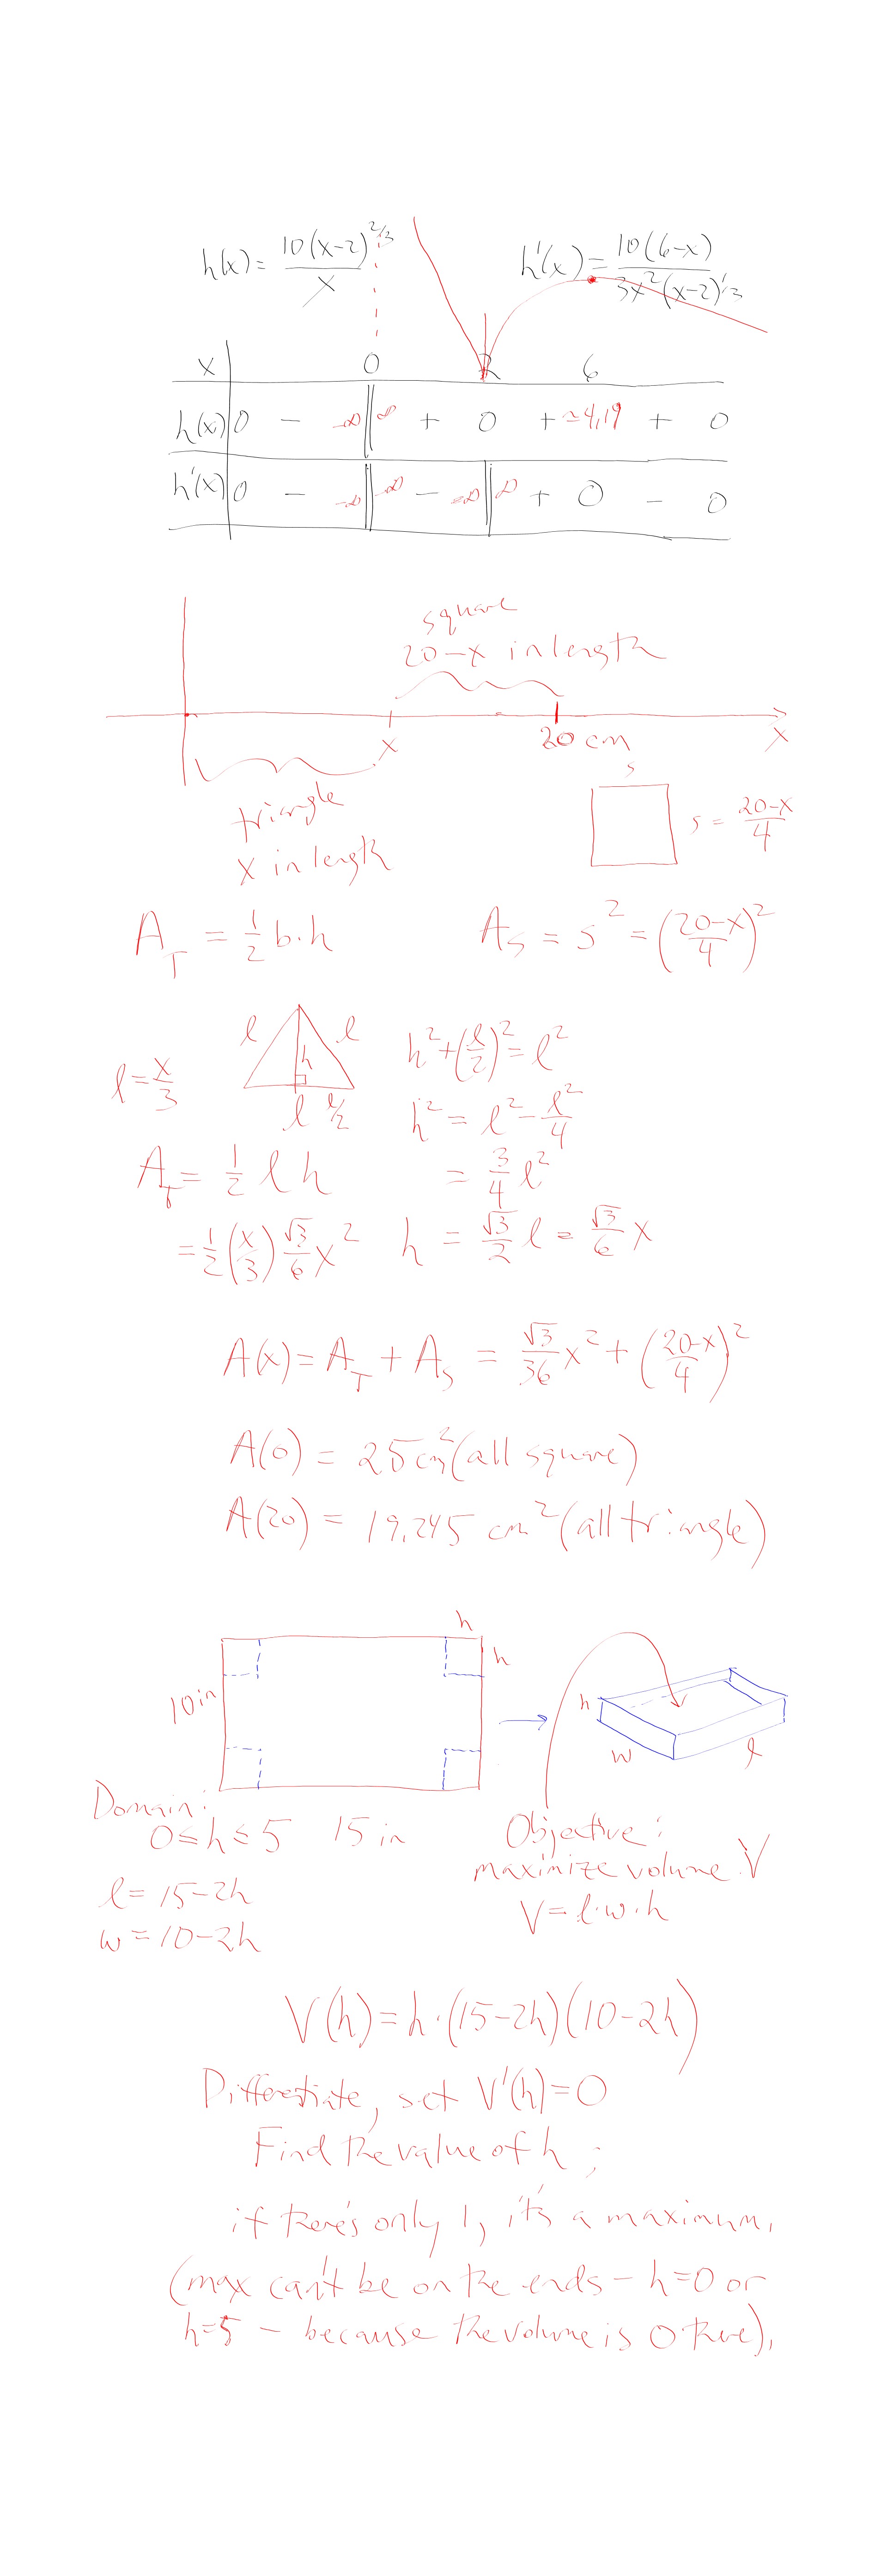 h(x) = 10(x-2)^2/3 / x    h'(x) = 10(6-x) / 3x^2(x-2)^1/3
x 0 2 6
h(x) 0 - -∞ ∞ + 0 + ≈4.19 + 0
h'(x) 0 - -∞ -∞ - -∞ ∞ + 0 - 0
square
20-x in length
x 20 cm x
triangle
x in length
s
s = 20-x / 4
A_T = 1/2 b·h    A_S = s^2 = (20-x / 4)^2
l = x/3
l l h
l l/2
h^2 + (l/2)^2 = l^2
h^2 = l^2 - l^2/4
A_T = 1/2 l h    = 3/4 l^2
= 1/2 (x/3) √3/6 x^2    h = √3/2 l = √3/6 x
A(x) = A_T + A_S = √3/36 x^2 + (20-x / 4)^2
A(0) = 25 cm^2 (all square)
A(20) = 19.245 cm^2 (all triangle)
h
h
10 in
h
w l
Domain:
0 ≤ h ≤ 5    15 in
Objective:
maximize volume V
l = 15-2h
w = 10-2h
V = l·w·h
V(h) = h·(15-2h)(10-2h)
Differentiate, set V'(h) = 0
Find the value of h;
if there's only 1, it's a maximum.
(max can't be on the ends - h=0 or
h=5 - because the volume is 0 there).